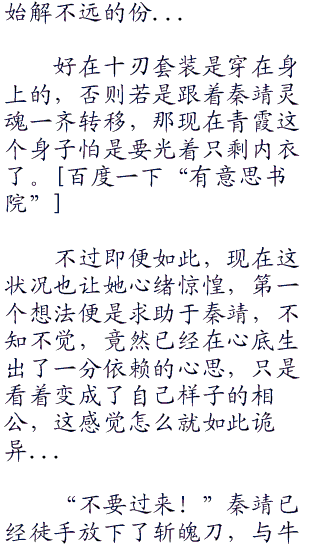 始解不远的份...
好在十刃套装是穿在身
上的，否则若是跟着秦靖灵
魂一齐转移，那现在青霞这
个身子怕是要光着只剩内衣
了。[百度一下“有意思书
院”]
不过即便如此，现在这
状况也让她心绪惊惶，第一
个想法便是求助于秦靖，不
知不觉，竟然已经在心底生
出了一分依赖的心思，只是
看着变成了自己样子的相
公，这感觉怎么就如此诡
异...
“不要过来！”秦靖已
经徒手放下了斩魄刀，与牛